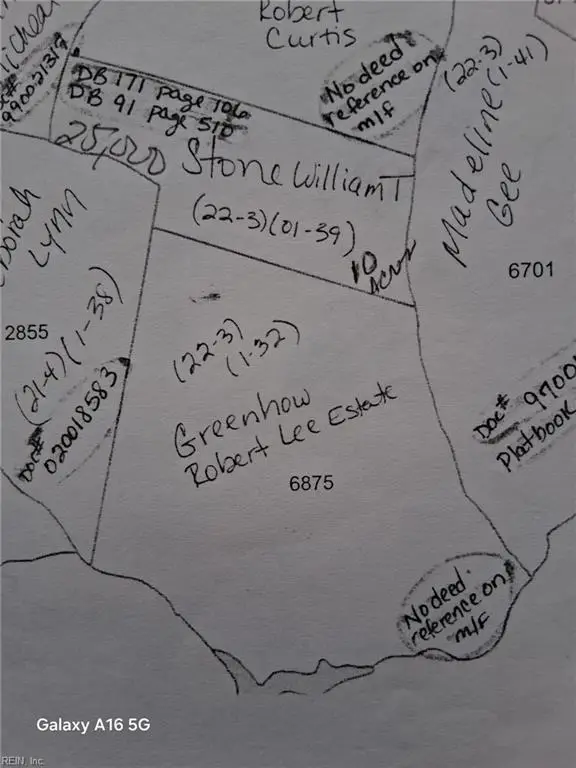 Robert
Curtis
Doc#
990021312
DB 171 page 106
DB 91 page 510
No deed
reference on
m/f
(22-3)
(1-41)
Madeline
Gee
6701
25,000
Stone William T
(22-3)(01-39)
10
Acres
Lynn
2855
(21-4)(1-38)
Doc#
020018583
(22-3)
(1-32)
Greenhow
Robert Lee Estate
6875
Doc#
Platbook
No deed
reference on
m/f
Galaxy A16 5G
REIN, Inc.